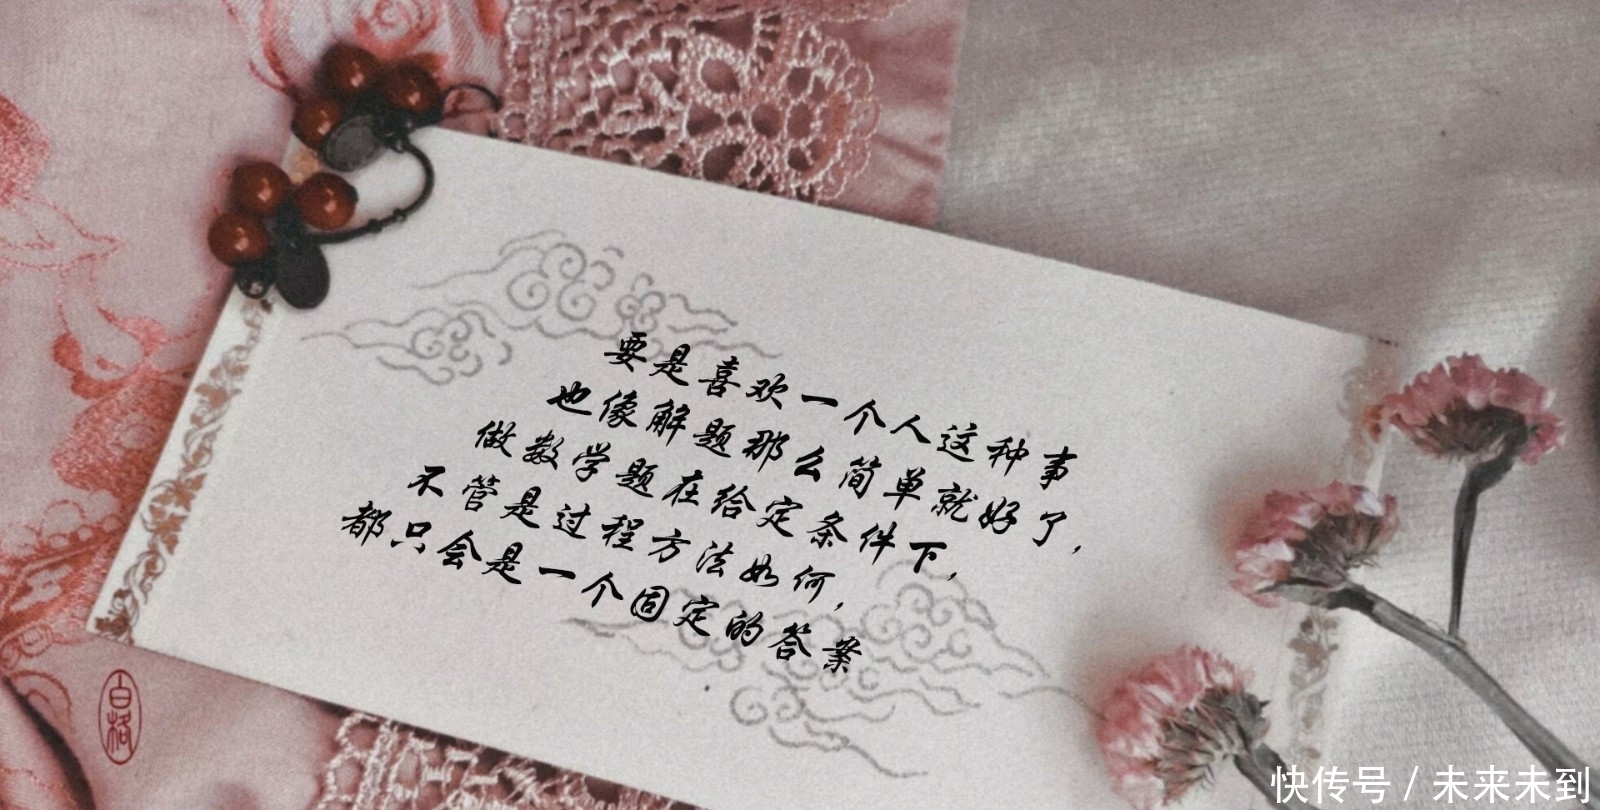 要是喜欢一个人这种事
也像解题那么简单就好了，
做数学题在给定条件下，
不管是过程方法如何，
都只会是一个固定的答案
白格
快传号 / 未来未到